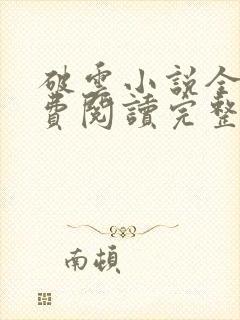 破雲小說全
費閱讀完整
南頓